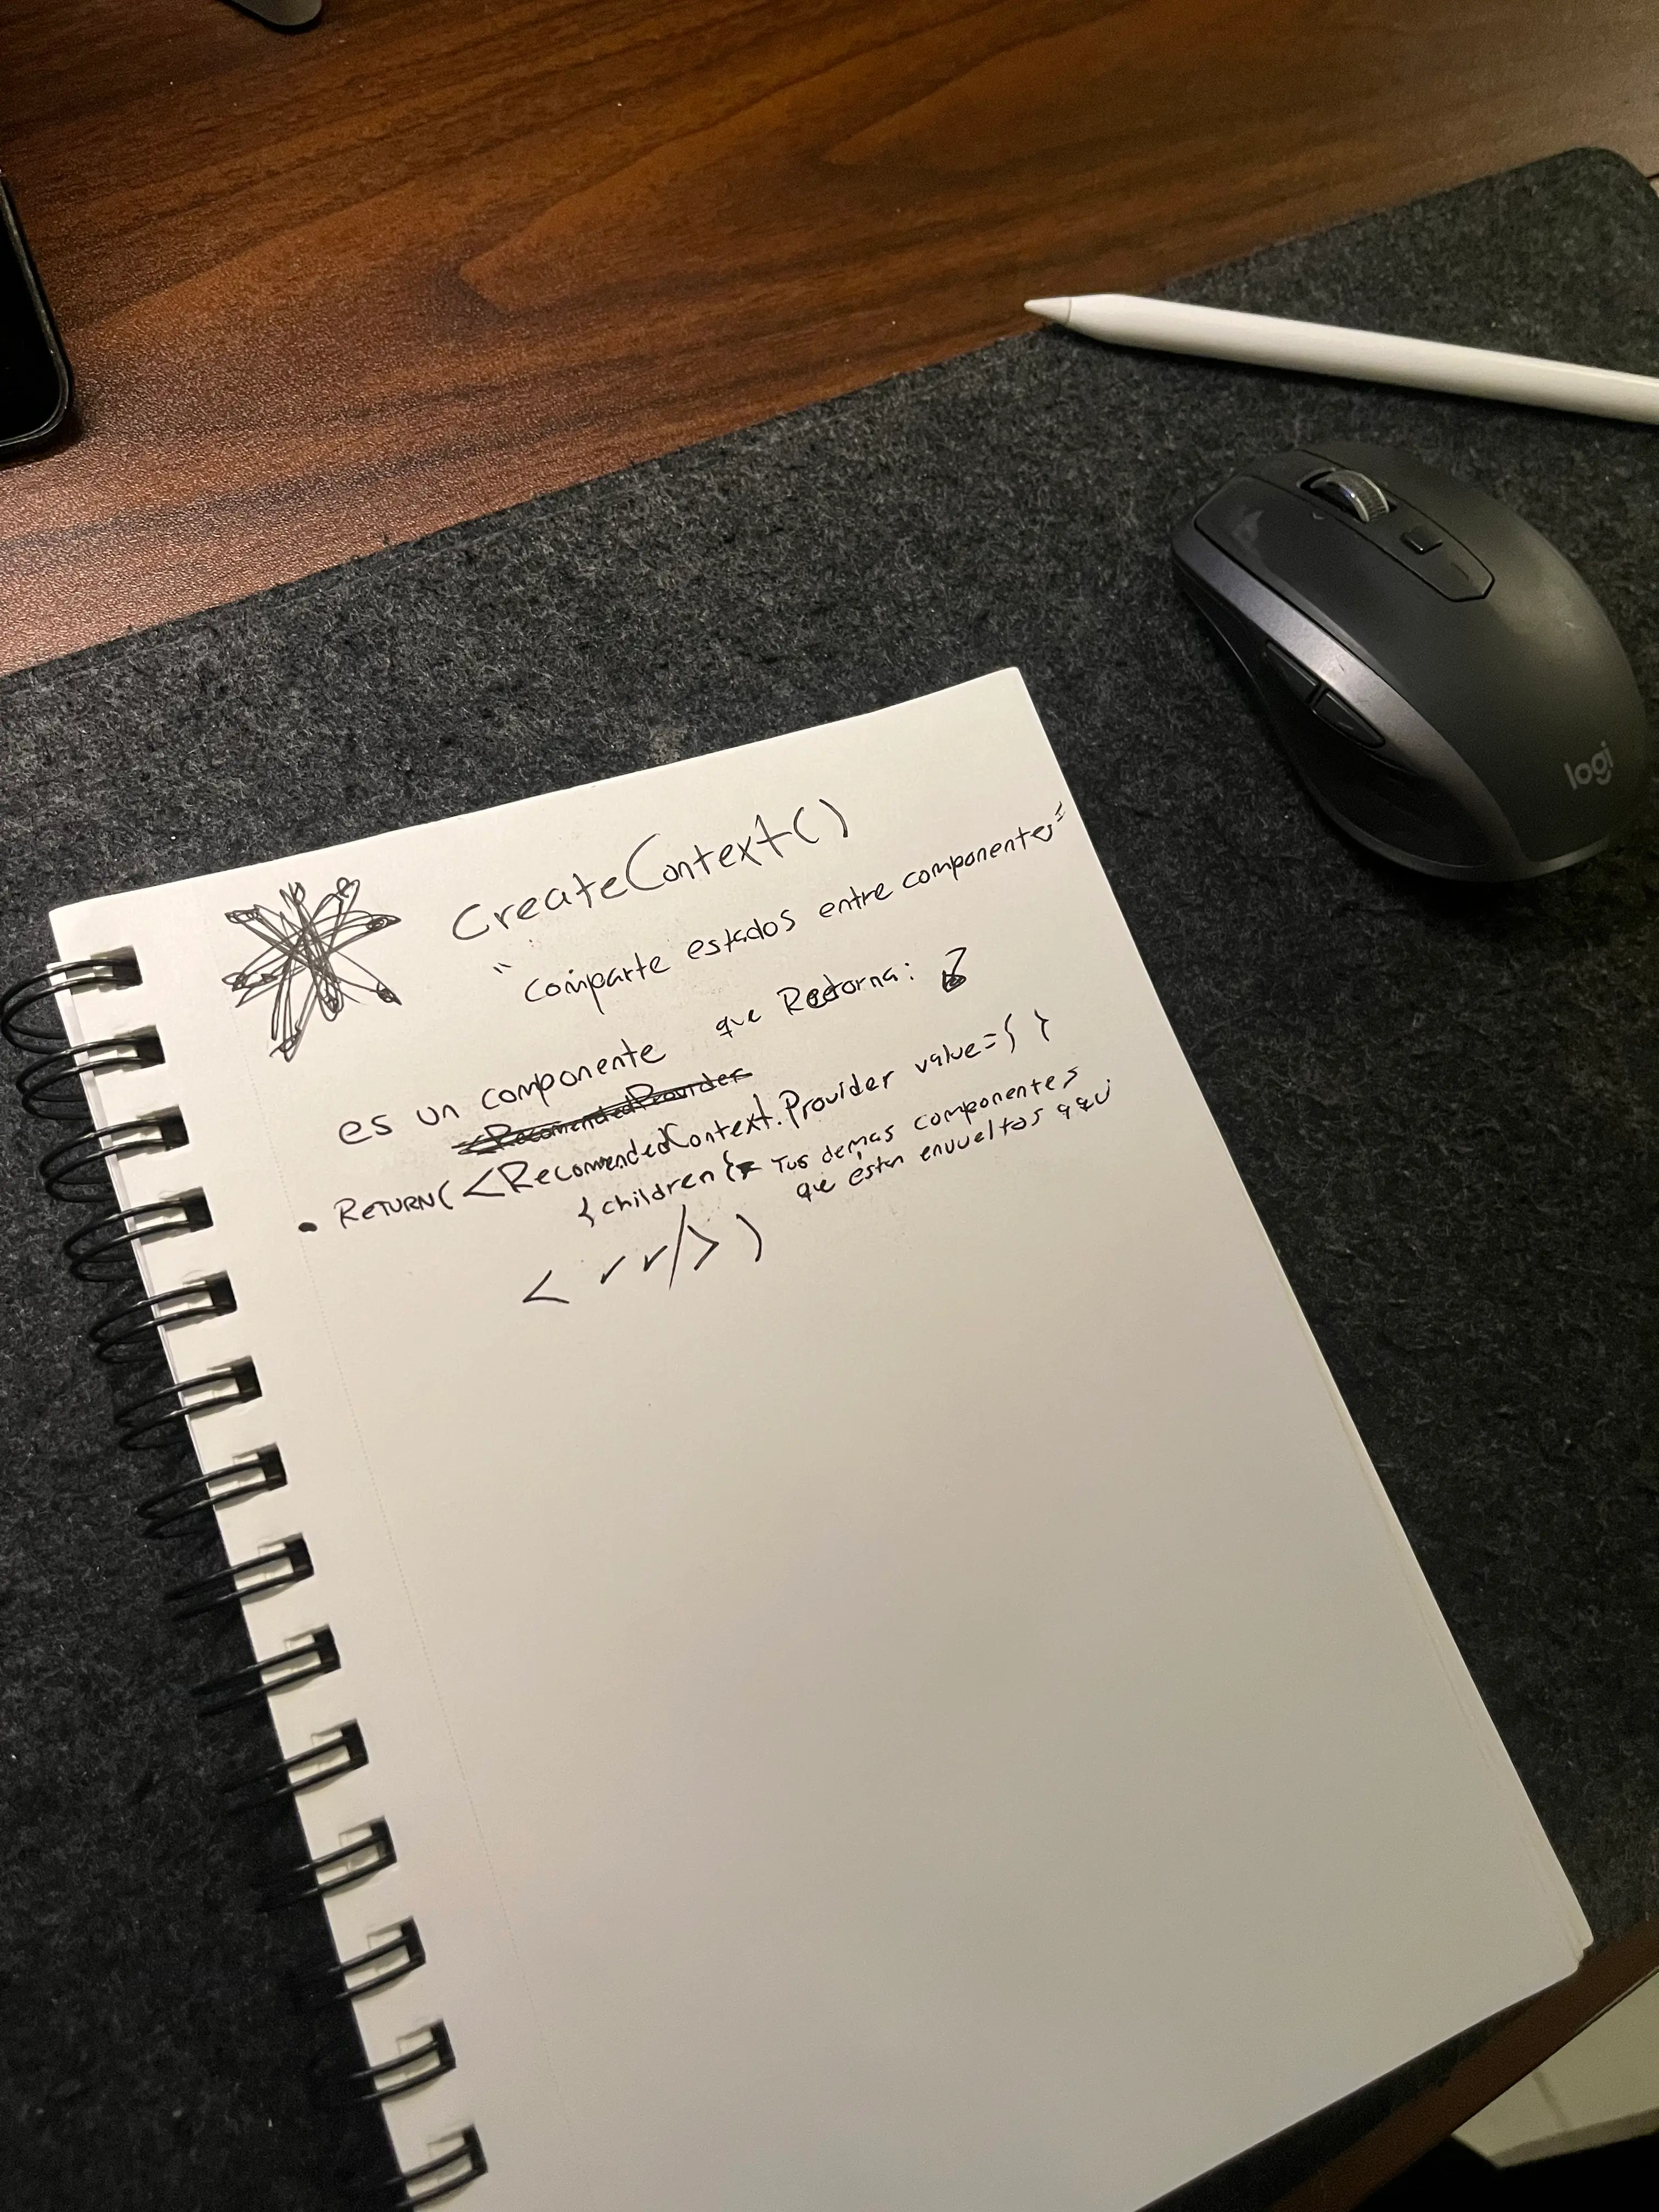 CreateContext()
"comparte estados entre componentes"
es un componente que Retorna:
<RecomendedProvider
• RETURN( <RecomendedContext.Provider value={ }
{children} Tus demas componentes
que estan envueltos aqui
< />)
logi